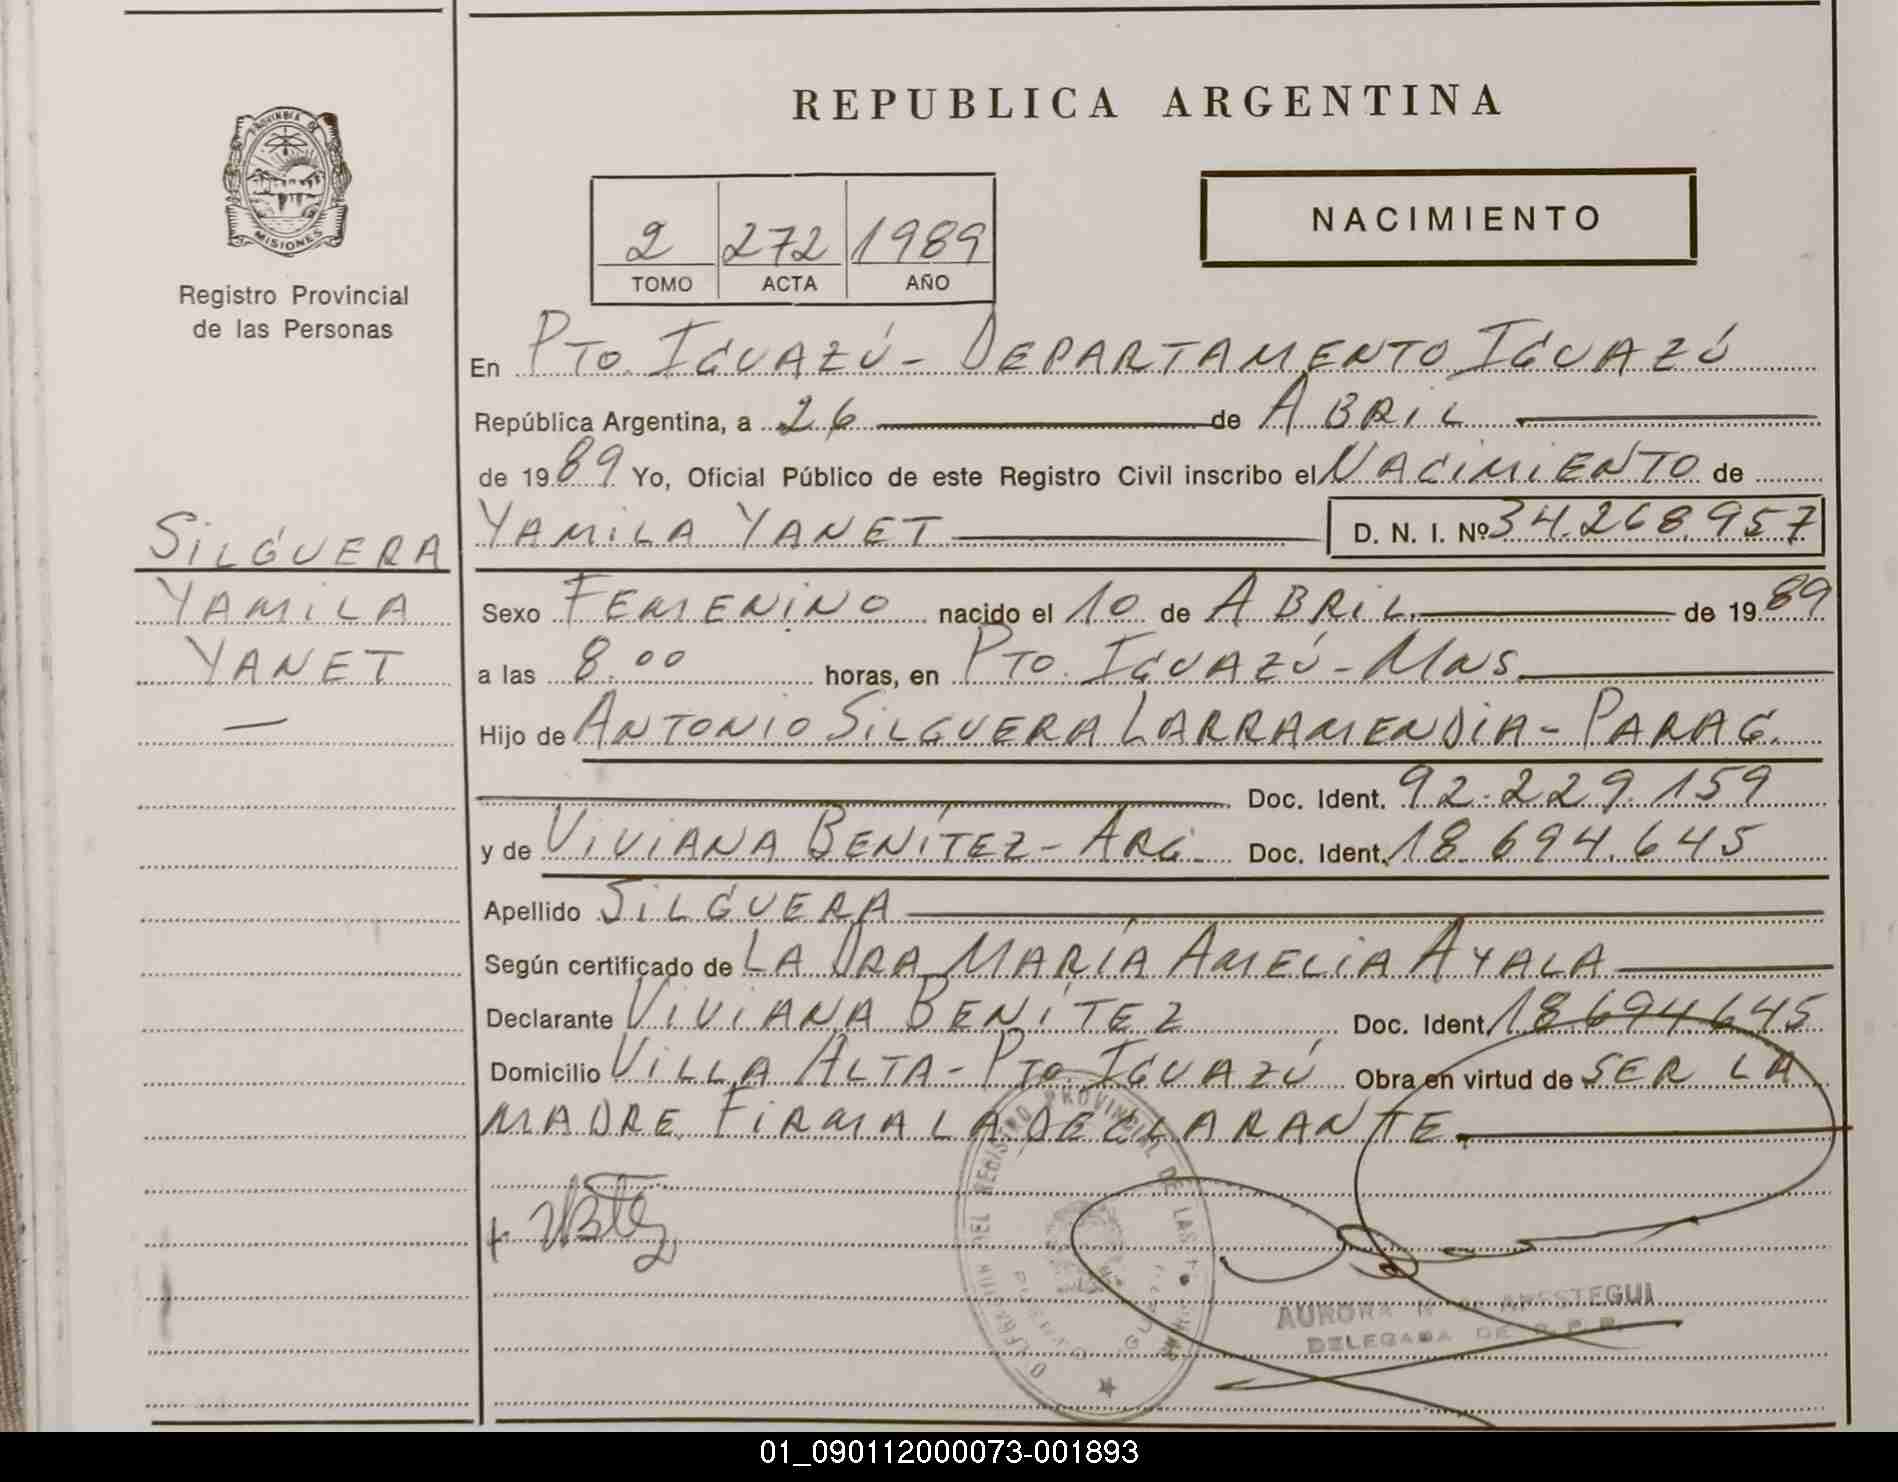 PROVINCIA DE
MISIONES
Registro Provincial
de las Personas
SILGUERA
YAMILA
YANET
—
REPUBLICA ARGENTINA
2 272 1989
TOMO ACTA AÑO
NACIMIENTO
En PTO. IGUAZÚ - DEPARTAMENTO IGUAZÚ
República Argentina, a 26 de ABRIL
de 1989 Yo, Oficial Público de este Registro Civil inscribo el NACIMIENTO de
YAMILA YANET D. N. I. Nº 34.268.957
Sexo FEMENINO nacido el 10 de ABRIL de 1989
a las 8.00 horas, en PTO. IGUAZÚ - MNS
Hijo de ANTONIO SILGUERA LARRAMENDIA - PARAG.
Doc. Ident. 92.229.159
y de VIVIANA BENÍTEZ - ARG. Doc. Ident. 18.694.645
Apellido SILGUERA
Según certificado de LA DRA MARÍA AMELIA AYALA
Declarante VIVIANA BENÍTEZ Doc. Ident. 18.694.645
Domicilio VILLA ALTA - PTO. IGUAZÚ Obra en virtud de SER LA
MADRE FIRMA LA DECLARANTE.
DEL REGISTRO PROVINCIAL DE LAS
AURORA
DELEGADA DE R.P.P.
01_090112000073-001893